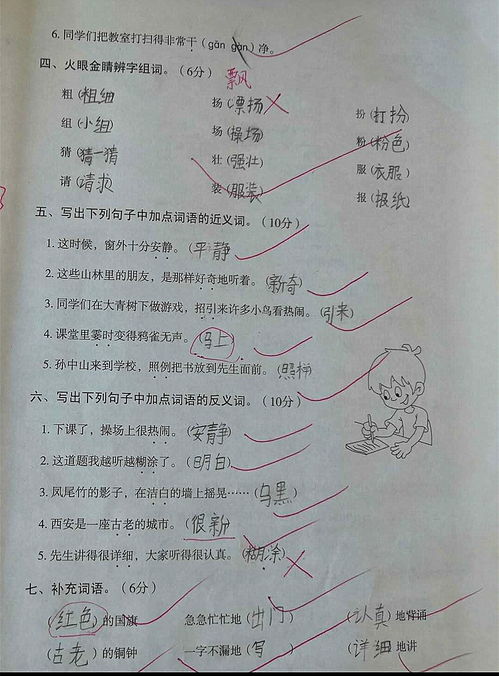 6. 同学们把教室打扫得非常干（gān gàn）净。
四、火眼金睛辨字组词。（6分） 飘
粗（粗细 扬（漂扬 扮（打扮）
组（小组） 场（操场） 粉（粉色）
猜（猜一猜 壮（强壮） 服（衣服）
请（请求 装（服装） 报（报纸）
五、写出下列句子中加点词语的近义词。（10分）
1. 这时候，窗外十分安静。（平静
2. 这些山林里的朋友，是那样好奇地听着。（新奇）
3. 同学们在大青树下做游戏，招引来许多小鸟看热闹。（引来
4. 课堂里霎时变得鸦雀无声。（马上）
5. 孙中山来到学校，照例把书放到先生面前。（照样
六、写出下列句子中加点词语的反义词。（10分）
1. 下课了，操场上很热闹。（安静）
2. 这道题我越听越糊涂了。（明白）
3. 凤尾竹的影子，在洁白的墙上摇晃……（乌黑）
4. 西安是一座古老的城市。（很新）
5. 先生讲得很详细，大家听得很认真。（糊涂）
七、补充词语。（6分）
（红色）的国旗 急急忙忙地（出门） （认真）地背诵
（古老）的铜钟 一字不漏地（写） （详细 地讲